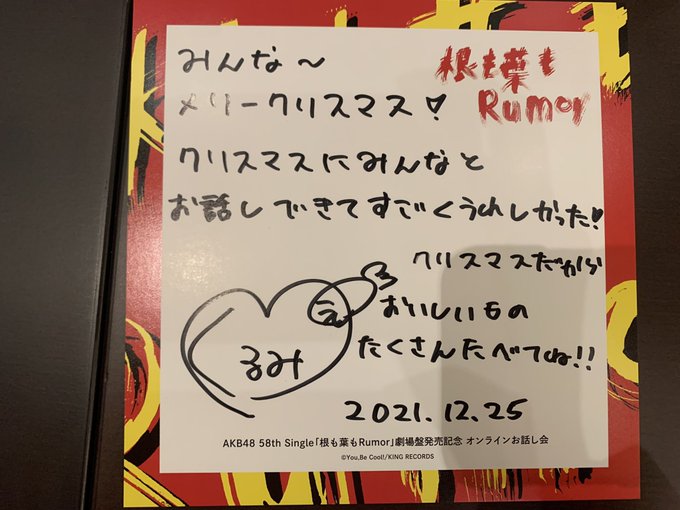 みんな〜
メリークリスマス!
根も葉も
Rumor
クリスマスにみんなと
お話しできてすごくうれしかった!
クリスマスだから
おいしいもの
たくさんたべてね!!
るみ
2021.12.25
AKB48 58th Single「根も葉もRumor」劇場盤発売記念 オンラインお話し会
©You,Be Cool!/KING RECORDS